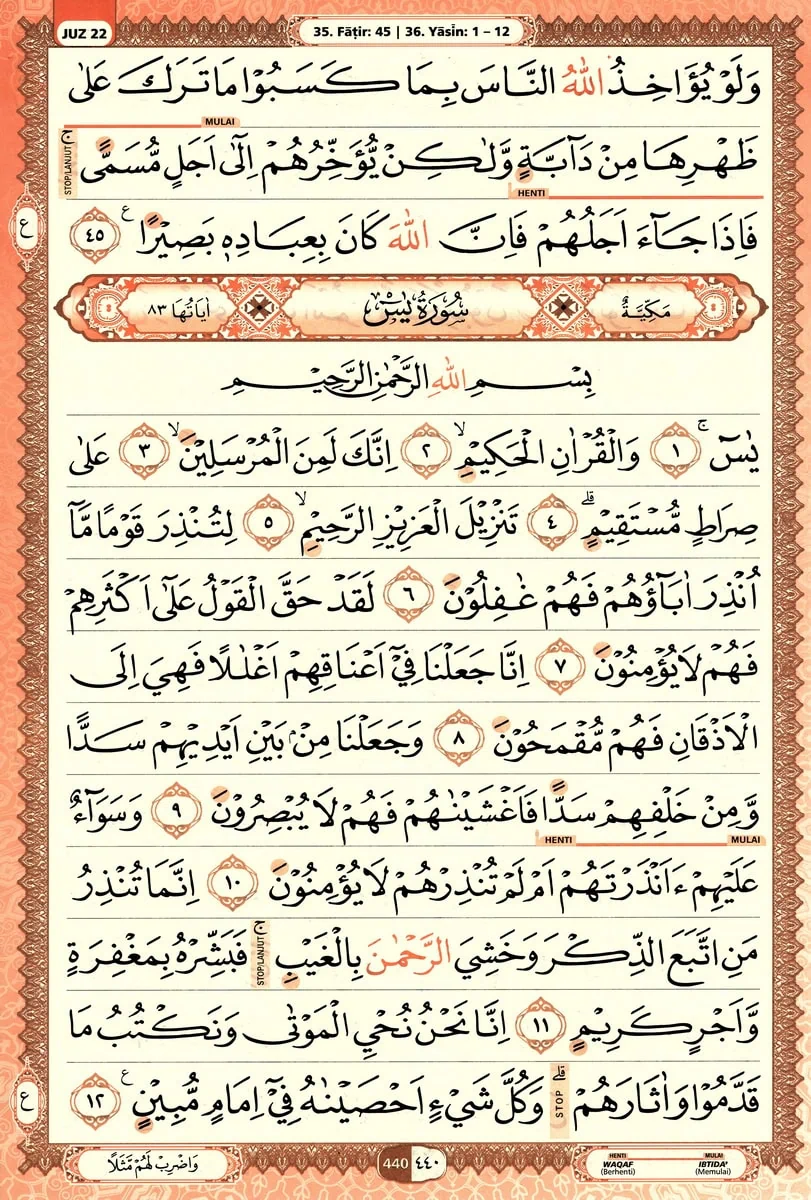 JUZ 22
35. Fāṭir: 45 | 36. Yāsīn: 1 – 12
وَلَوْ يُؤَاخِذُ اللّٰهُ النَّاسَ بِمَا كَسَبُوْا مَا تَرَكَ عَلٰى
MULAI
ظَهْرِهَا مِنْ دَاۤبَّةٍ وَّلٰكِنْ يُّؤَخِّرُهُمْ اِلٰٓى اَجَلٍ مُّسَمًّى ۚ
STOP/LANJUT
HENTI
فَاِذَا جَاۤءَ اَجَلُهُمْ فَاِنَّ اللّٰهَ كَانَ بِعِبَادِهٖ بَصِيْرًا ࣖ ٤٥
ع
مَكِّيَّةٌ
سُوْرَةُ يٰسۤ
اٰيَاتُهَا ٨٣
بِسْمِ اللّٰهِ الرَّحْمٰنِ الرَّحِيْمِ
يٰسۤ ۚ ١ وَالْقُرْاٰنِ الْحَكِيْمِۙ ٢ اِنَّكَ لَمِنَ الْمُرْسَلِيْنَۙ ٣ عَلٰى
صِرَاطٍ مُّسْتَقِيْمٍۗ ٤ تَنْزِيْلَ الْعَزِيْزِ الرَّحِيْمِۙ ٥ لِتُنْذِرَ قَوْمًا مَّآ
اُنْذِرَ اٰبَاۤؤُهُمْ فَهُمْ غٰفِلُوْنَ ٦ لَقَدْ حَقَّ الْقَوْلُ عَلٰٓى اَكْثَرِهِمْ
فَهُمْ لَا يُؤْمِنُوْنَ ٧ اِنَّا جَعَلْنَا فِيْٓ اَعْنَاقِهِمْ اَغْلٰلًا فَهِيَ اِلَى
الْاَذْقَانِ فَهُمْ مُّقْمَحُوْنَ ٨ وَجَعَلْنَا مِنْۢ بَيْنِ اَيْدِيْهِمْ سَدًّا
وَّمِنْ خَلْفِهِمْ سَدًّا فَاَغْشَيْنٰهُمْ فَهُمْ لَا يُبْصِرُوْنَ ٩ وَسَوَاۤءٌ
HENTI
MULAI
عَلَيْهِمْ ءَاَنْذَرْتَهُمْ اَمْ لَمْ تُنْذِرْهُمْ لَا يُؤْمِنُوْنَ ١٠ اِنَّمَا تُنْذِرُ
مَنِ اتَّبَعَ الذِّكْرَ وَخَشِيَ الرَّحْمٰنَ بِالْغَيْبِۚ فَبَشِّرْهُ بِمَغْفِرَةٍ
STOP/LANJUT
وَّاَجْرٍ كَرِيْمٍ ١١ اِنَّا نَحْنُ نُحْيِ الْمَوْتٰى وَنَكْتُبُ مَا
قَدَّمُوْا وَاٰثَارَهُمْۗ وَكُلَّ شَيْءٍ اَحْصَيْنٰهُ فِيْٓ اِمَامٍ مُّبِيْنٍ ࣖ ١٢
STOP
ع
وَاضْرِبْ لَهُمْ مَّثَلًا
440 ٤٤٠
HENTI
WAQAF
(Berhenti)
MULAI
IBTIDA'
(Memulai)